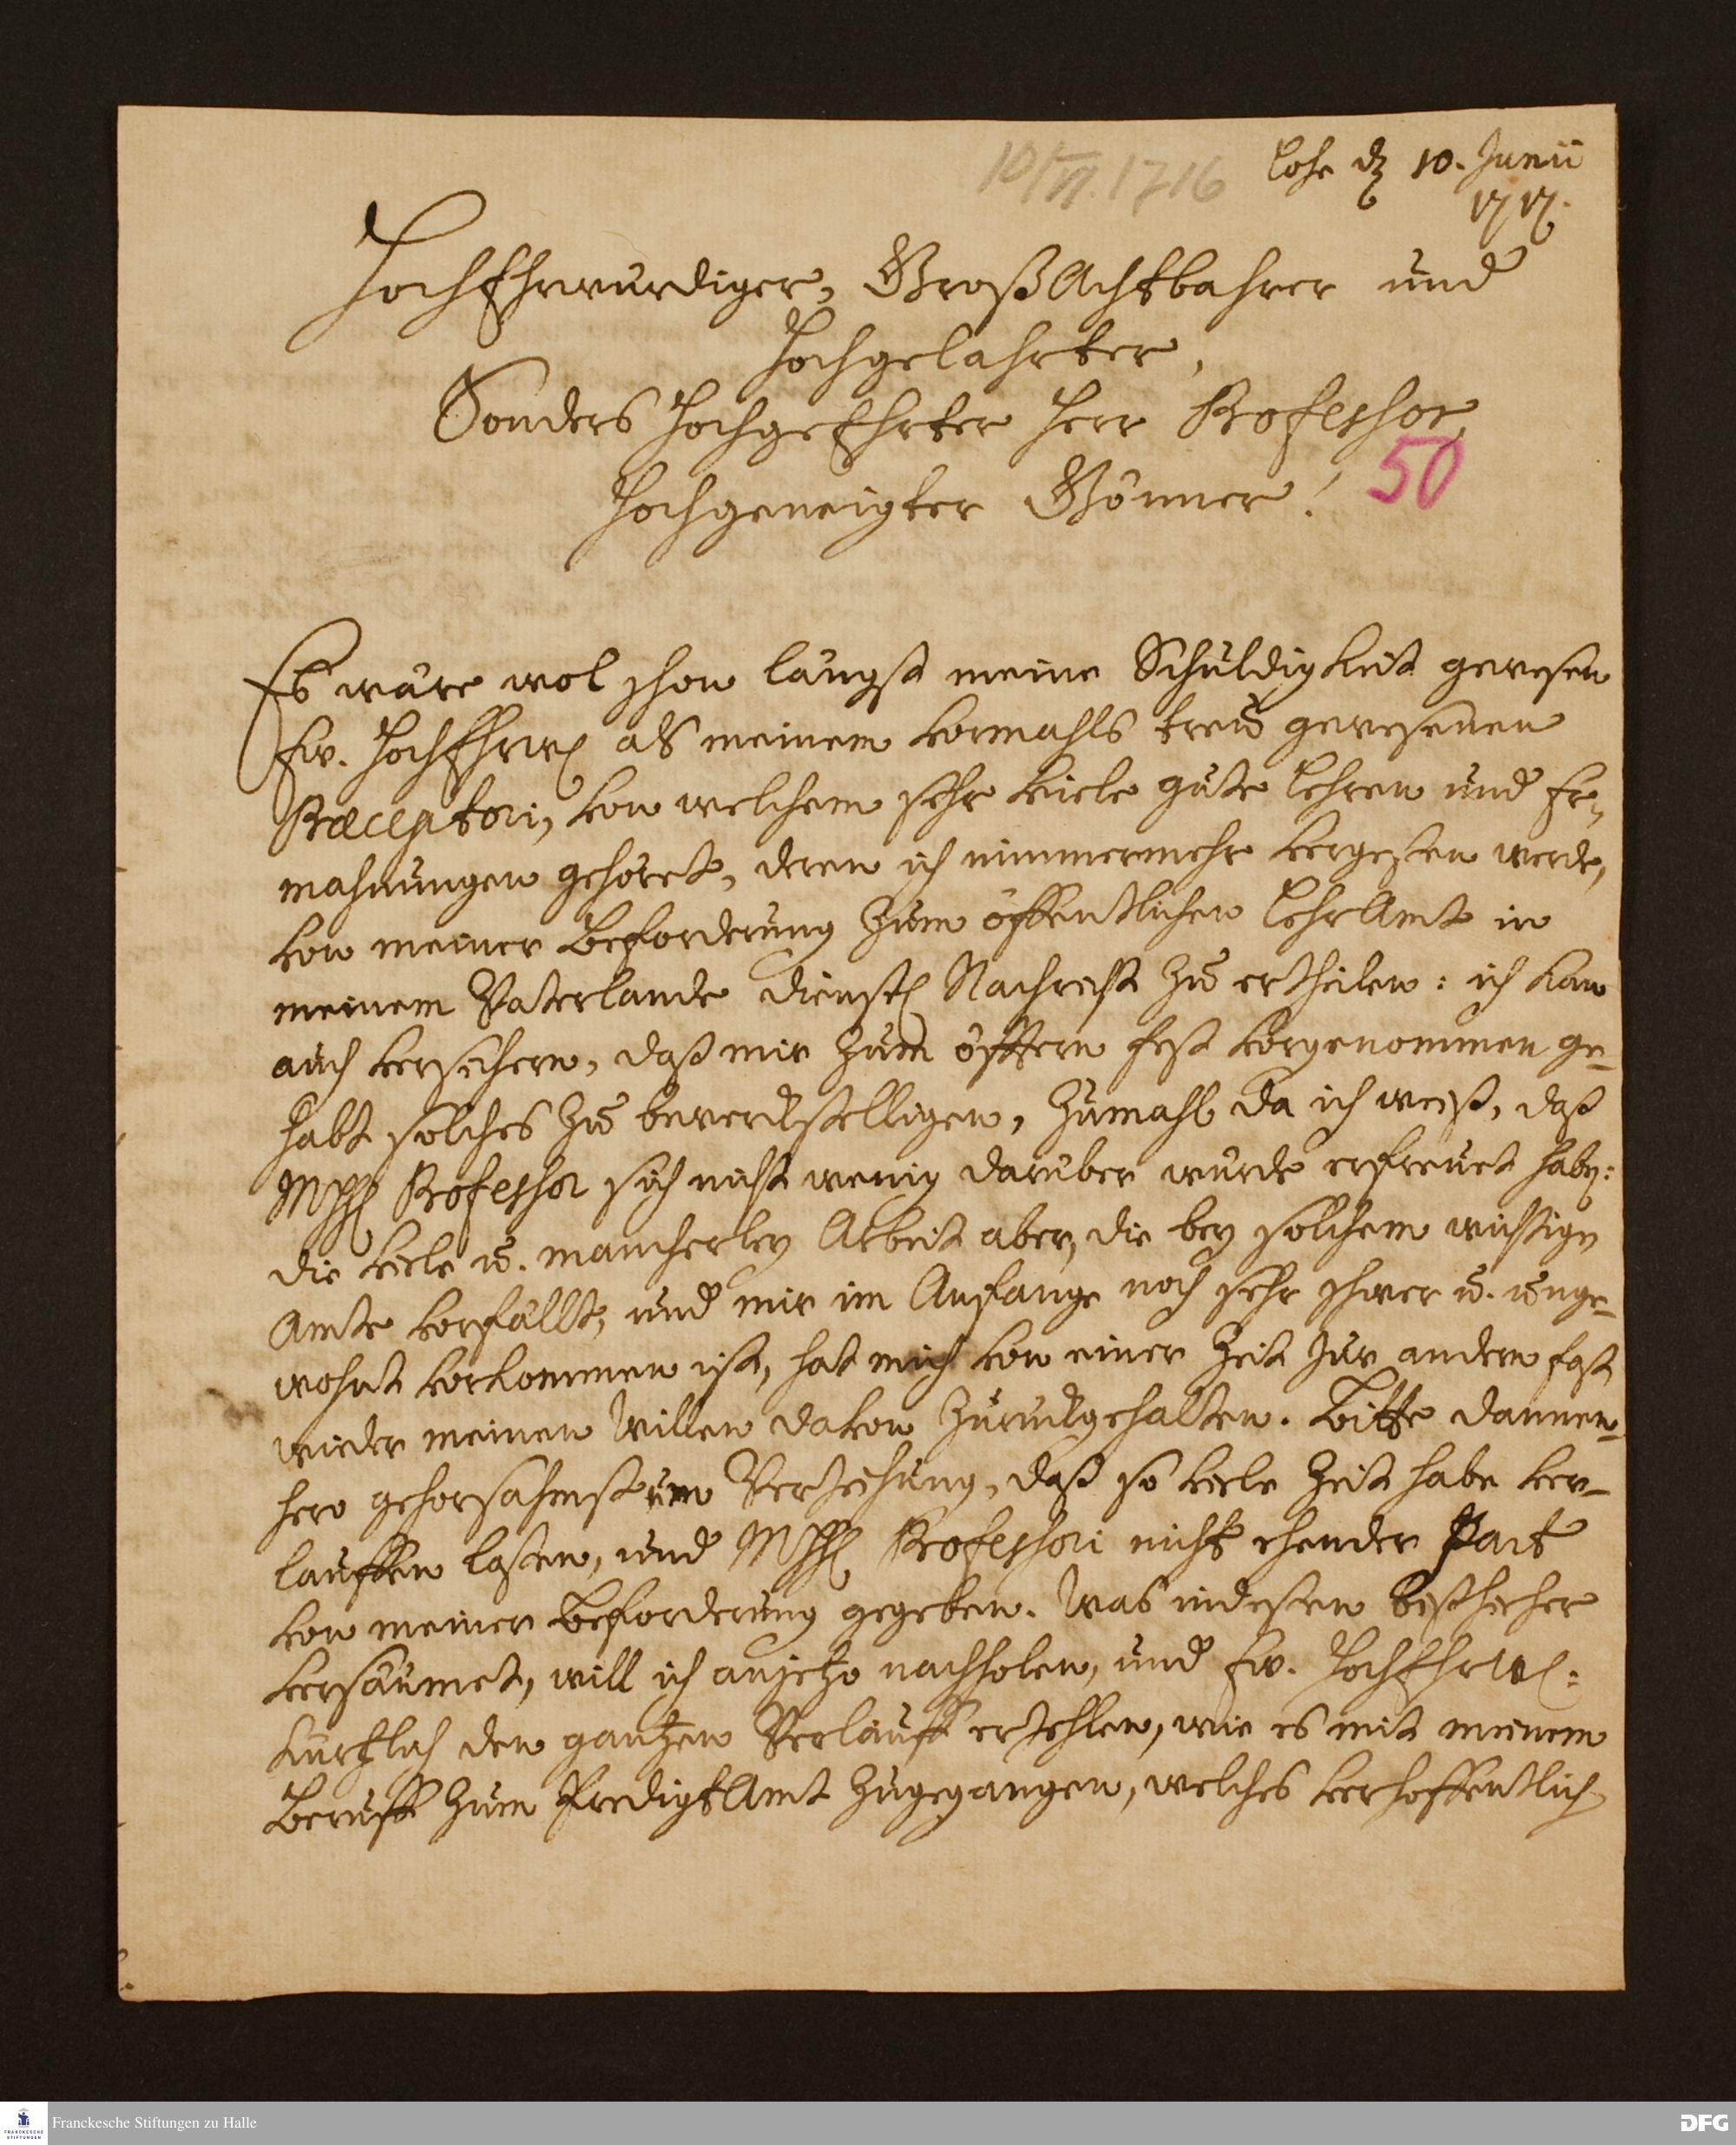 10/VI. 1716
Lohe d 10. Junii
1717.
HochEhrwurdiger, GroßAchtbahrer und
Hochgelahrter,
Sonders HochgeEhrter Herr Professor,
50
Hochgeneigter Gönner!
Es wäre wol schon längst meine Schuldigkeit gewesen
Ew. HochEhrw als meinem vormahls treu gewesenen
Præceptori, von welchem sehr viele gute Lehren und Er-
mahnungen gehöret, deren ich nimmermehr vergessen werde,
von meiner Beforderung zum öffentlichen LehrAmt in
meinem Vaterlande dienstl Nachricht zu ertheilen: ich kan
auch versichern, daß mir zum öfftern fest vorgenommen ge-
habt solches zu bewerckstelligen, zumahl da ich weiß, daß
MHH Professor sich nicht wenig daruber wurde erfreuet haben:
die viele u. mancherley Arbeit aber, die bey solchem wichtigen
Amte vorfällt, und mir im Anfange noch sehr schwer u. unge-
wohnt vorkommen ist, hat mich von einer Zeit zur andern fast
wieder meinen Willen davon zuruckgehalten. Bitte dannen-
hero gehorsahmst um Verzeihung, daß so viele Zeit habe ver-
lauffen lassen, und MHH Professori nicht ehender Part
von meiner Beforderung gegeben. Was indessen bißhieher
versäumet, will ich anjetzo nachholen, und Ew. HochEhrw:
kürtzlich den gantzen Verlauff erzehlen, wie es mit meinem
Beruff zum PredigtAmt zugegangen, welches verhoffentlich
Franckesche Stiftungen zu Halle
FRANCKESCHE
STIFTUNGEN
DFG